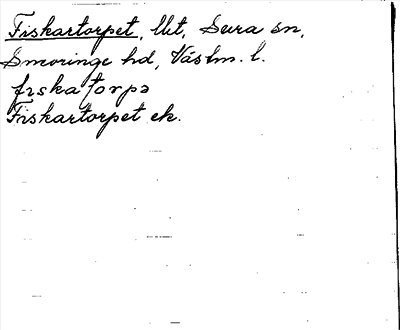 Fiskartorpet, lht, Sura sn,
Snevringe hd, Västm. l.
fiskatorpə
Fiskartorpet ek.